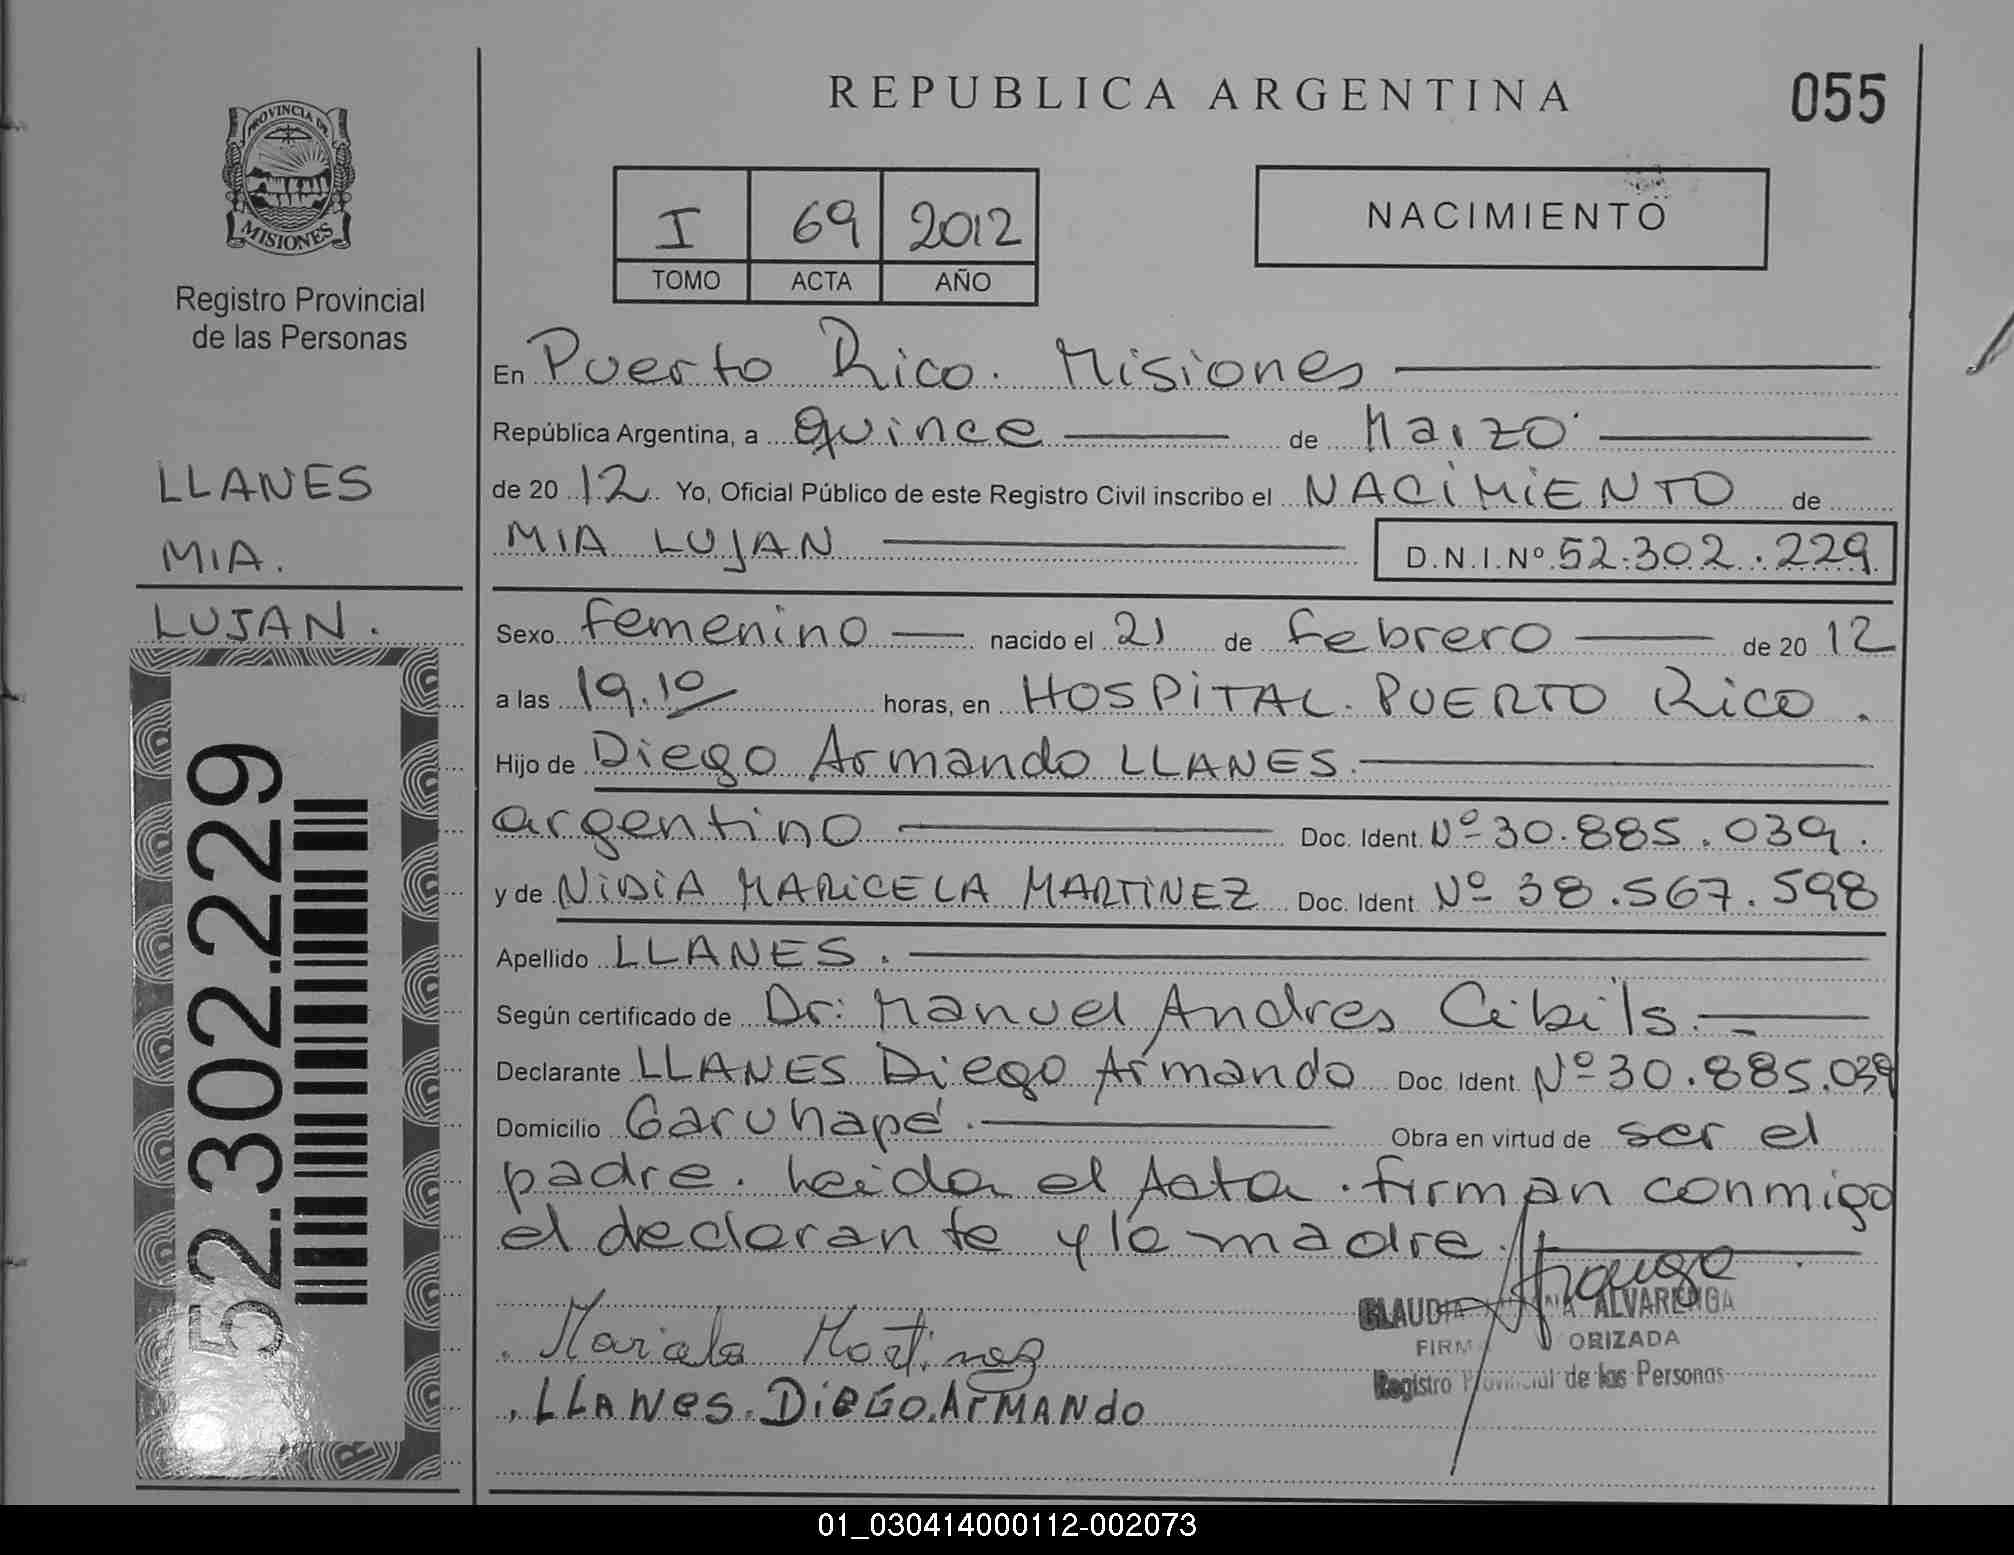 REPUBLICA ARGENTINA
055
PROVINCIA DE
MISIONES
Registro Provincial
de las Personas
I 69 2012
TOMO ACTA AÑO
NACIMIENTO
LLANES
MIA.
LUJAN.
52.302.229
En Puerto Rico. Misiones
República Argentina, a quince de Marzo
de 2012 Yo, Oficial Público de este Registro Civil inscribo el NACIMIENTO de
MIA LUJAN D.N.I. Nº 52.302.229
Sexo femenino nacido el 21 de febrero de 2012
a las 19.10 horas, en HOSPITAL PUERTO Rico.
Hijo de Diego Armando LLANES.
argentino Doc. Ident. Nº 30.885.039.
y de NIDIA MARICELA MARTINEZ Doc. Ident. Nº 38.567.598
Apellido LLANES.
Según certificado de Dr: Manuel Andres Cibils.
Declarante LLANES Diego Armando Doc. Ident. Nº 30.885.039
Domicilio Garuhapé. Obra en virtud de ser el
padre. Leida el Acta. firman conmigo
el declarante y la madre.
Mariela Martinez
LLANES. DIEGO. ARMANDO
CLAUDIA ALVARENGA
FIRMA ORIZADA
Registro Provincial de las Personas
01_030414000112-002073